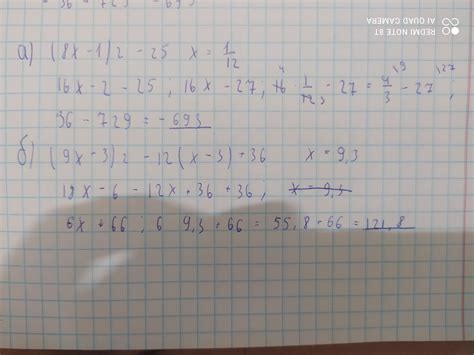 36 - 729 - 693
REDMI NOTE 8T
AI QUAD CAMERA
а) (8x-1)2-25 x=1/12
16x-2-25, 16x-27, 16·1/12 3 -27=4/3 -27,
4 \9 \27
36-729=-693
б) (9x-3)2-12(x-3)+36 x=9,3
18x-6-12x+36+36, x=9,3
6x+66; 6 9,3+66=55,8+66=121,8